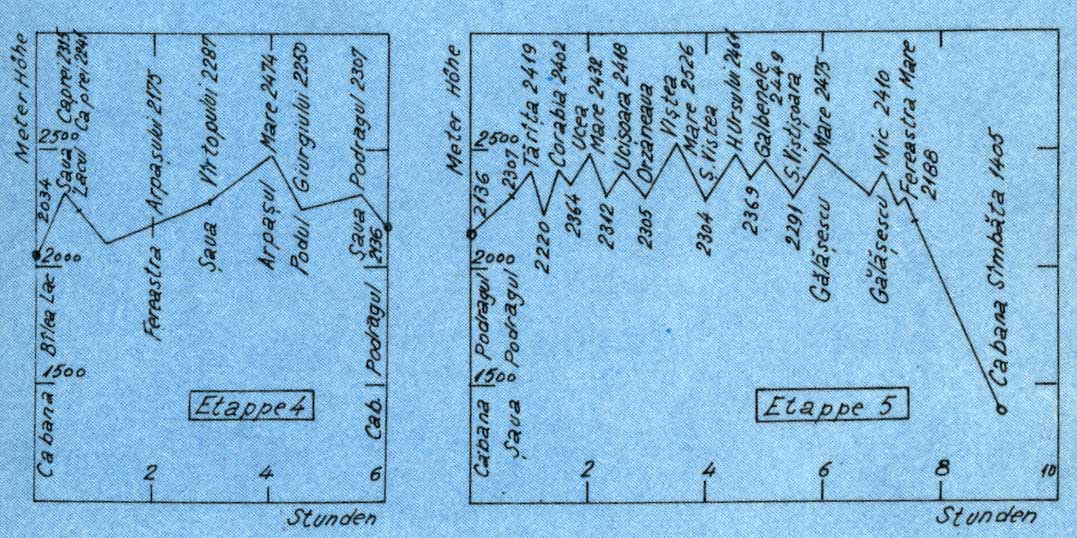 Meter Höhe
2500
2000
1500
Cabana Bîlea Lac
2034
Șaua Caprei 2315
Lacul Caprei 2241
Fereastra Arpașului 2175
Șaua Vîrtopului 2287
Arpașul Mare 2474
Podul Giurgiului 2250
Șaua Podragul 2307
Cab. Podragul
Etappe 4
2
4
6
Stunden
Meter Höhe
2500
2000
1500
Cabana Podragul
2136
Șaua Podragul
2307
Tărița 2419
2220
Corabia 2402
2364
Ucea Mare 2432
2312
Ucișoara 2418
2305
Orzăneaua
Viștea Mare 2526
Ș. Viștea
2304
H. Ursului
2369
Galbenele 2449
2291
Ș. Viștișoara
Gălășescu Mare 2475
Gălășescu Mic 2410
Fereastra Mare 2188
Cabana Sîmbăta 1405
Etappe 5
2
4
6
8
10
Stunden